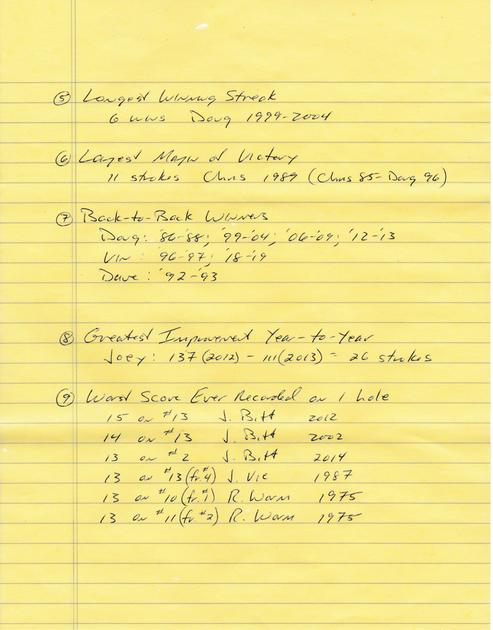 ⑤ Longest Winning Streak
6 wins Doug 1999-2004
⑥ Largest Margin of Victory
11 strokes Chris 1989 (Chris 85- Doug 96)
⑦ Back-to-Back Winners
Doug: '86-'88; '99-'04; '06-'09; '12-'13
Vin: 96-'97; '18-'19
Dave: '92-'93
⑧ Greatest Improvement Year-to-Year
Joey: 137 (2012) - 111 (2013) = 26 strokes
⑨ Worst Score Ever Recorded on 1 hole
15 on #13 J. Bitt 2012
14 on #13 J. Bitt 2002
13 on #2 J. Bitt 2014
13 on #13 (fr. #4) J. Vie 1987
13 on #10 (fr. #1) R. Worm 1975
13 on #11 (fr. #2) R. Worm 1975